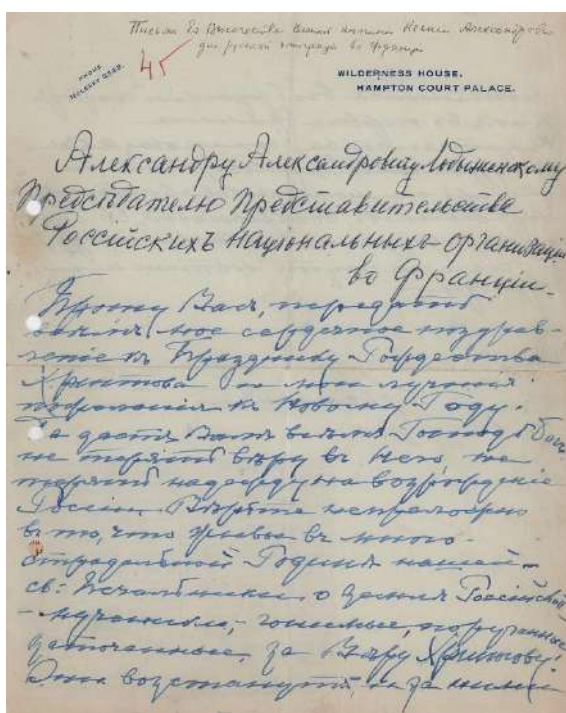 Письмо Ея Высочества Великой Княгини Ксении Александровны
для русской эмиграции во Франции
45
PHONE
MOLESEY
WILDERNESS HOUSE,
HAMPTON COURT PALACE.
Александру Александровичу Лодыженскому
Предсѣдателю Представительства
Россійскихъ Національныхъ организацій
во Франціи.
Прошу Васъ, передать
всѣмъ, мое сердечное поздрав-
леніе къ Празднику Рождества
Христова и мои лучшія
пожеланія къ Новому Году.
Да дастъ Вамъ всѣмъ Господь Богъ
не терять вѣру въ Него, не
терять надежду на возрожденіе
Россіи. Вѣрьте непреложно
въ то, что живы въ много-
страдальной Родинѣ нашей
св: Печальники о землѣ Россійской
- мученики, - гонимые, поруганные
заточенные, за Вѣру Христову!
Они возстанутъ, и за ними